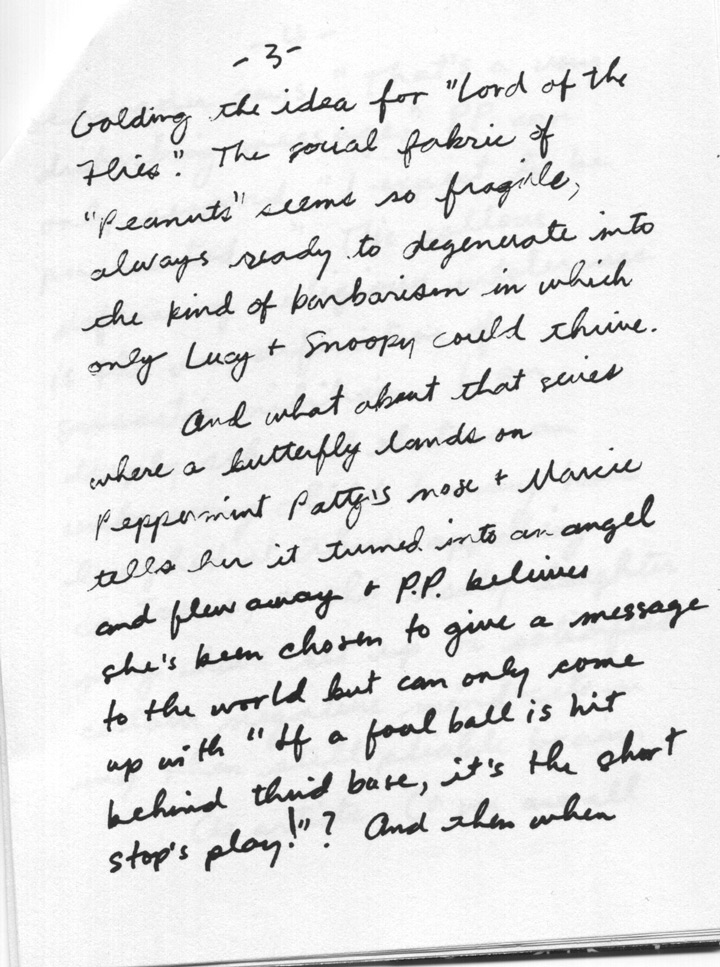 -3-
Golding the idea for "Lord of the
Flies". The social fabric of
"Peanuts" seems so fragile,
always ready to degenerate into
the kind of barbarism in which
only Lucy + Snoopy could thrive.
And what about that series
where a butterfly lands on
Peppermint Patty's nose + Marcie
tells her it turned into an angel
and flew away + P.P. believes
she's been chosen to give a message
to the world but can only come
up with "If a foul ball is hit
behind third base, it's the short
stop's play!"? And then when